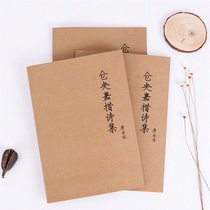 仓央嘉措诗集
仓央嘉措诗集